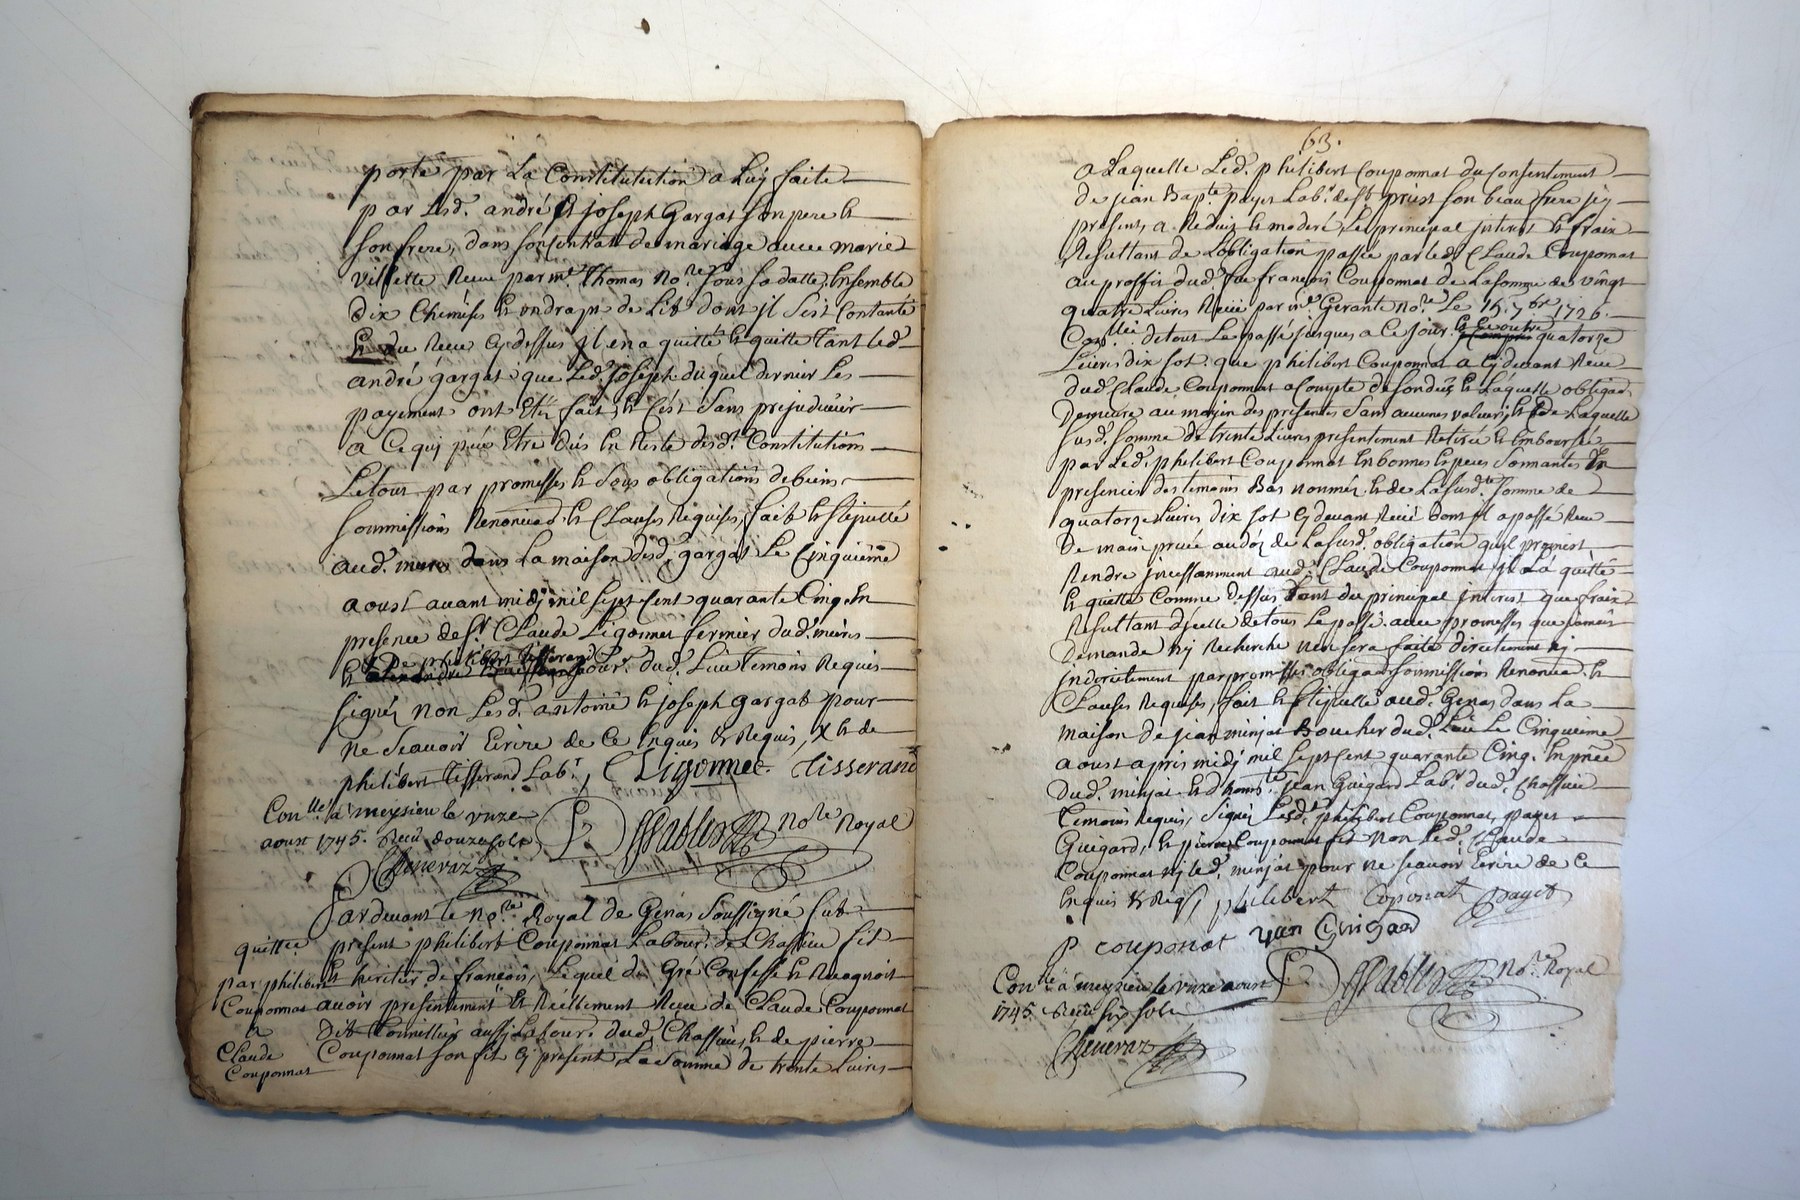 porté par La Constitutution a Luy faite
par Lesd. andré & joseph Gargat son pere &
son frere, dans son contrat de mariage avec marie
villette Receu par me. Thomas nore. sous sa datte, Ensemble
dix Chemises & un drap de Lit dont jl s'est Contanté
& du Receu cy dessus jl en a quitté & quitte tant led.
andré gargat que Led. joseph duquel dernier Les
payement ont Eté fait, & c'est Sans prejudicier
a Ce qui peut Etre dus En Reste desd. Constitutions
Le tout par promesses & sous obligations de biens
Soummissions Renonciaõ. & Clauses Requises, fait & stipullé
aud. dans La maison desd. gargat Le Cinquième
aoust avant midj mil sept cent quarante Cinq. En
presence de Sr. CLaude Ligonnet fermier dud. mieres
& De philibert tisserand Labour. dud. Lieu Temoins Requis
signés non Lesd. antoine & joseph gargat pour
ne Scavoir Ecrire de Ce Enquis & Requis, X & de
philibert tisserand Labr., C Ligonnet. Tisserand
Conlle. à meysieu le unze
aoust 1745. Reçu douze sols
Cheneraz
nore Royal
Pardevant le nore. Royal de Genas Soussigné fut
quittce
present philibert Couponnat Labour. de Chassieu fils
par philibert
& heritier de françois, Lequel de Gré Confesse & Recognoit
Couponnat
avoir presentement & Réellement Receu de CLaude Couponnat
a
dit aussj Labour. dud. Chassieu, & de pierre
CLaude
Couponnat
Couponnat son fils cy present, La Somme de trente Livres
63.
a Laquelle Led. philibert Couponnat du Consentement
de jean Bapte. payet Labr. de St priest son beau frere jcy
present, a Reduit & moderé, Le principal jnterest & fraix
Resultant de L'obligation passée par led. CLaude Couponnat
au proffit dud. feu françois Couponnat de La somme de vingt
quatre Livres Receue par me. Gerante nore. Le 15. 7bre 1726.
Conlleé. de tout Le passé jusques a Ce jour & Ce outre quatorze
Livres dix sol. que philibert Couponnat a Cy devant Receu
dud. CLaude Couponnat a Compte & Laquelle obligaõ.
Demeure au moyen des presentes Sans aucunes valeurs, & de Laquelle
susd. somme de trente Livres presentement Retirée & Emboursée
par Led. philibert Couponnat En bonnes Especes Sonnantes En
presences des temoins Bas nommés & de La susdte. somme de
quatorze Livres dix sol cy devant Receu dont jl a passé Receu
de main privée au dos de La susd. obligation qu'il promest
Rendre jncessamment aud. CLaude Couponnat jl en a quitté
& quitte Comme dessus tant du principal jnterest que fraix
Resultant d'jcelle de tous Le passé. avec promesses que jamais
Demande nj Recherche n'en sera faite directement nj
jndirectement par promesses obligaõ. Soumissions Renonciaõ. &
Clauses Requises, fait & stipullé aud. Genas dans La
maison de jean minjat Boucher dud. Lieu Le Cinquieme
aoust apres midj mil sept cent quarante Cinq. En pnce.
dud. minjat & d'honte. jean Guigard Labr. dud. Chassieu
temoins Requis, signés Lesd. philibert Couponnat, payet
Guigard, & pierre Couponnat fils non Led. CLaude
Couponnat nj led. minjat pour ne scavoir Ecrire de Ce
Enquis & Reqs, philibert coponat payet
P couponat jan Guigard
Conlle à meyzieu le unze aoust
Nore. Royal
1745. Reçu six sols
Cheneraz